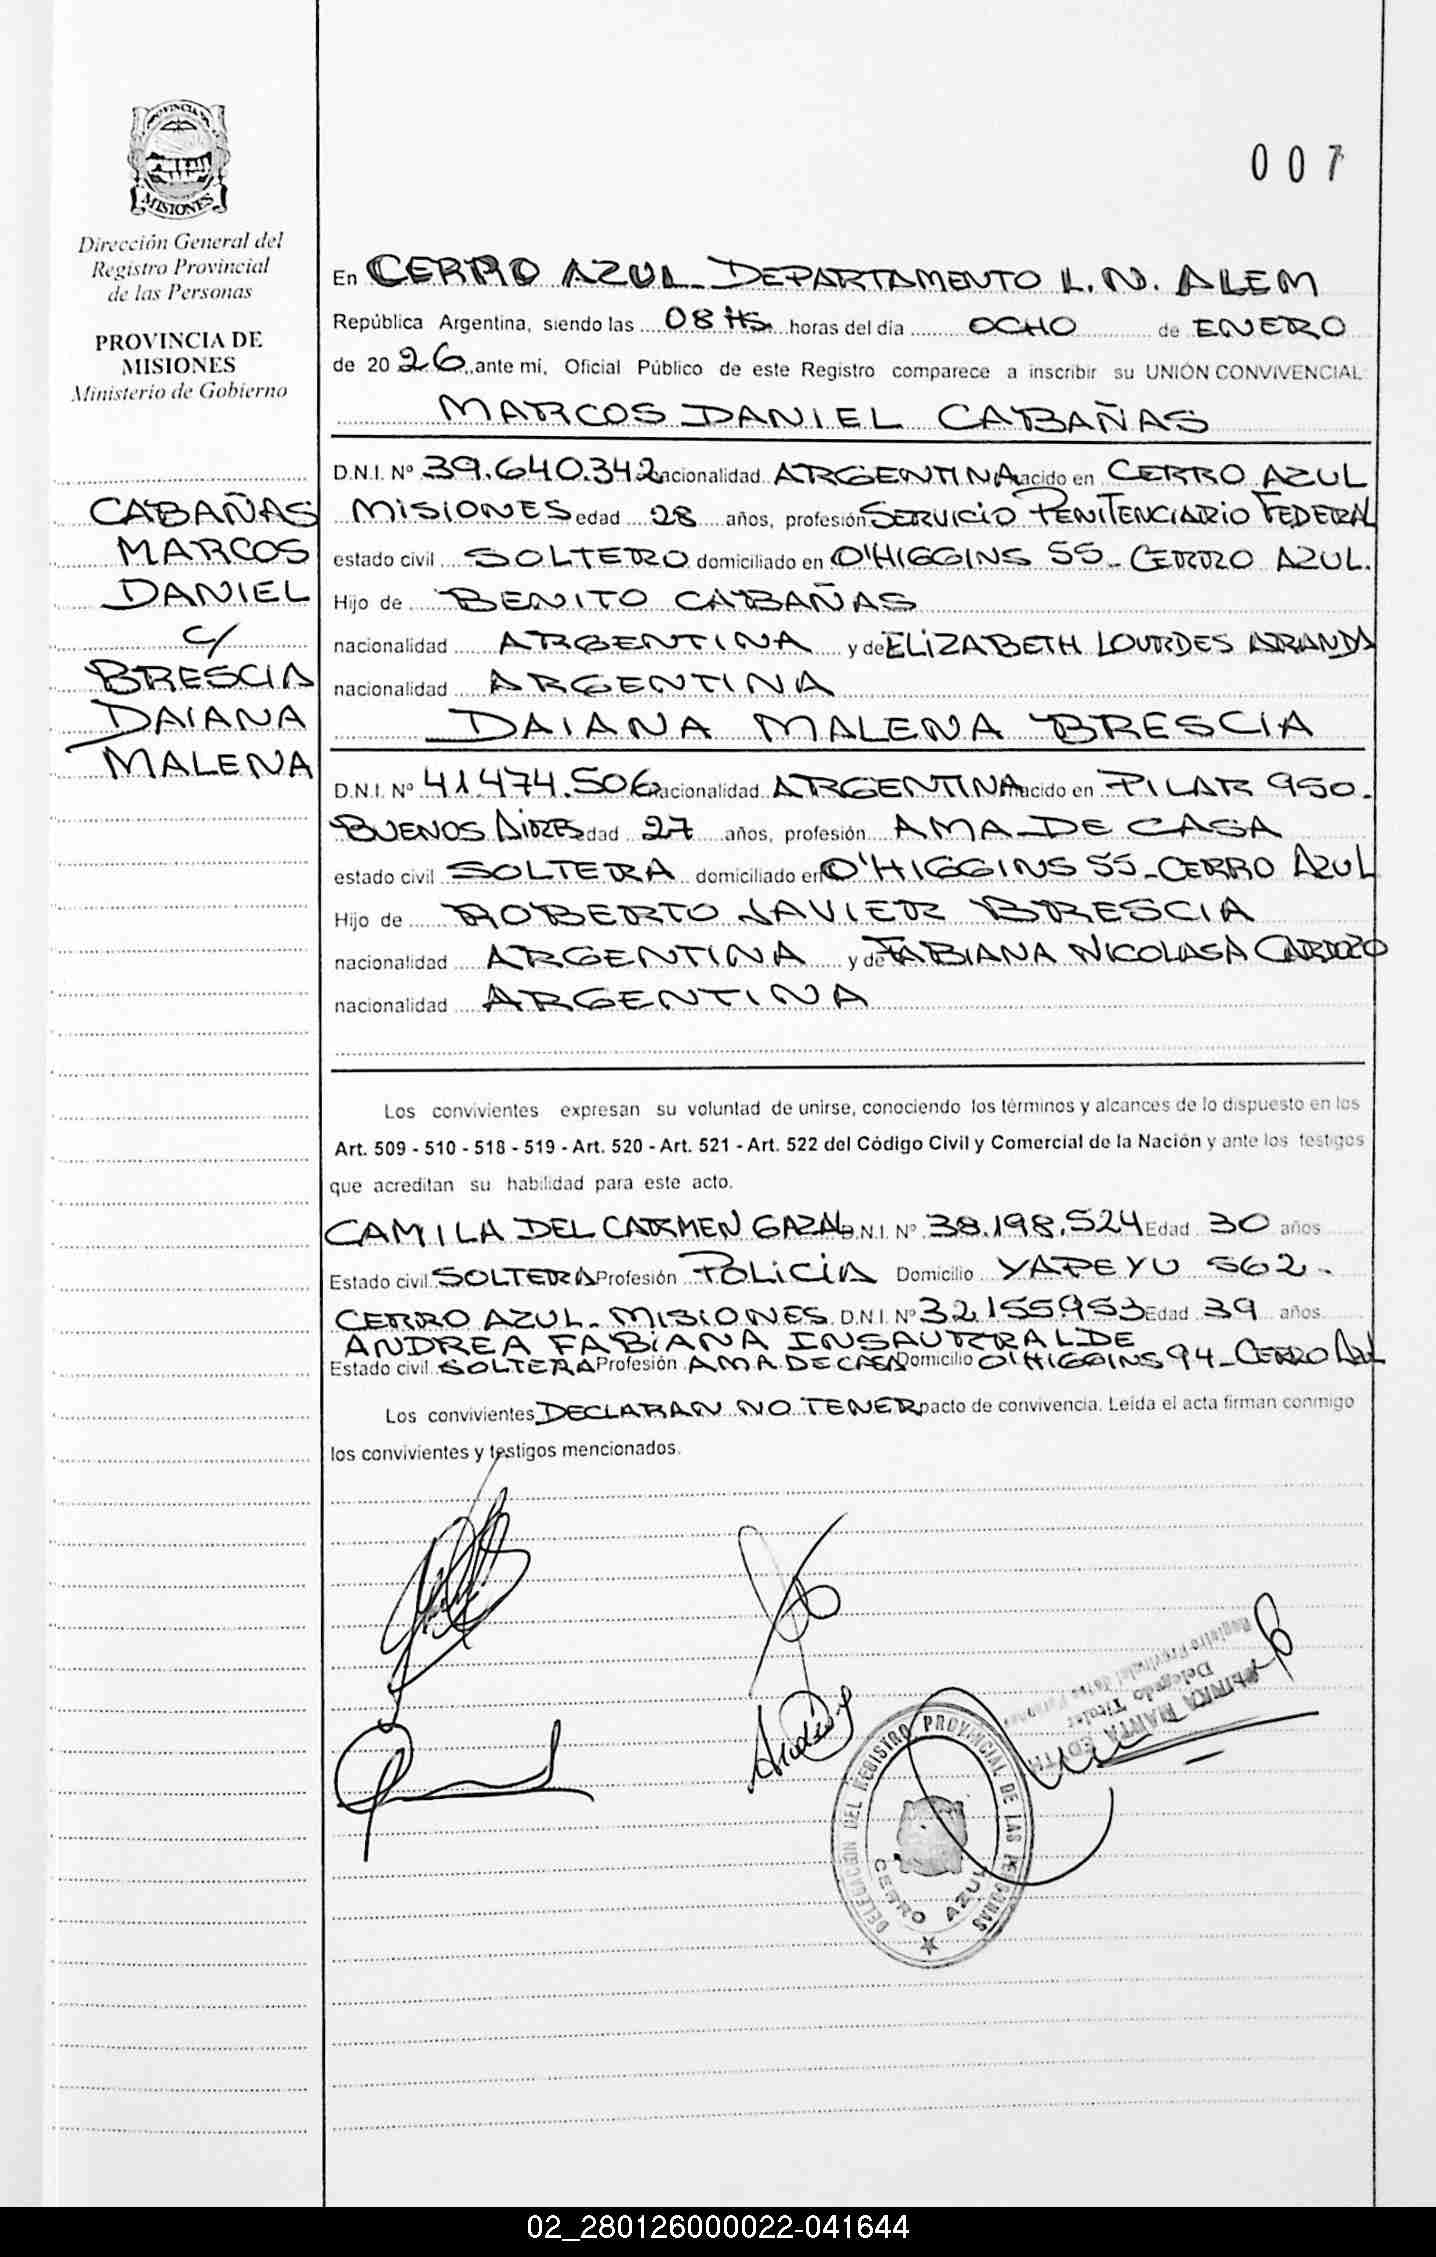 PROVINCIA DE
MISIONES
Dirección General del
Registro Provincial
de las Personas
PROVINCIA DE
MISIONES
Ministerio de Gobierno
CABAÑAS
MARCOS
DANIEL
C/
BRESCIA
DAIANA
MALENA
007
En CERRO AZUL - DEPARTAMENTO L. N. ALEM
República Argentina, siendo las 08 HS. horas del día OCHO de ENERO
de 2026, ante mi, Oficial Público de este Registro comparece a inscribir su UNIÓN CONVIVENCIAL:
MARCOS DANIEL CABAÑAS
D.N.I. Nº 39.640.342 nacionalidad ARGENTINA nacido en CERRO AZUL
MISIONES edad 28 años, profesión SERVICIO PENITENCIARIO FEDERAL
estado civil SOLTERO domiciliado en O'HIGGINS 55 - CERRO AZUL.
Hijo de BENITO CABAÑAS
nacionalidad ARGENTINA y de ELIZABETH LOURDES ARANDA
nacionalidad ARGENTINA
DAIANA MALENA BRESCIA
D.N.I. Nº 41.474.506 nacionalidad ARGENTINA nacido en PILAR 950.
BUENOS AIRES edad 27 años, profesión AMA DE CASA
estado civil SOLTERA domiciliado en O'HIGGINS 55 - CERRO AZUL
Hijo de ROBERTO JAVIER BRESCIA
nacionalidad ARGENTINA y de FABIANA NICOLASA CARDOZO
nacionalidad ARGENTINA
Los convivientes expresan su voluntad de unirse, conociendo los términos y alcances de lo dispuesto en los
Art. 509 - 510 - 518 - 519 - Art. 520 - Art. 521 - Art. 522 del Código Civil y Comercial de la Nación y ante los testigos
que acreditan su habilidad para este acto.
CAMILA DEL CARMEN GAZAL D.N.I. Nº 38.198.524 Edad 30 años
Estado civil SOLTERA Profesión POLICIA Domicilio YAPEYU 562 -
CERRO AZUL - MISIONES D.N.I. Nº 32.155953 Edad 39 años
ANDREA FABIANA INSAURRALDE
Estado civil SOLTERA Profesión AMA DE CASA Domicilio O'HIGGINS 94 - CERRO AZUL
Los convivientes DECLARAN NO TENER pacto de convivencia. Leída el acta firman conmigo
los convivientes y testigos mencionados.
MARTA EDITH
Delegado Titular
Registro Provincial de las Personas
DELEGACION DEL REGISTRO PROVINCIAL DE LAS PERSONAS
CERRO AZUL
02_280126000022-041644